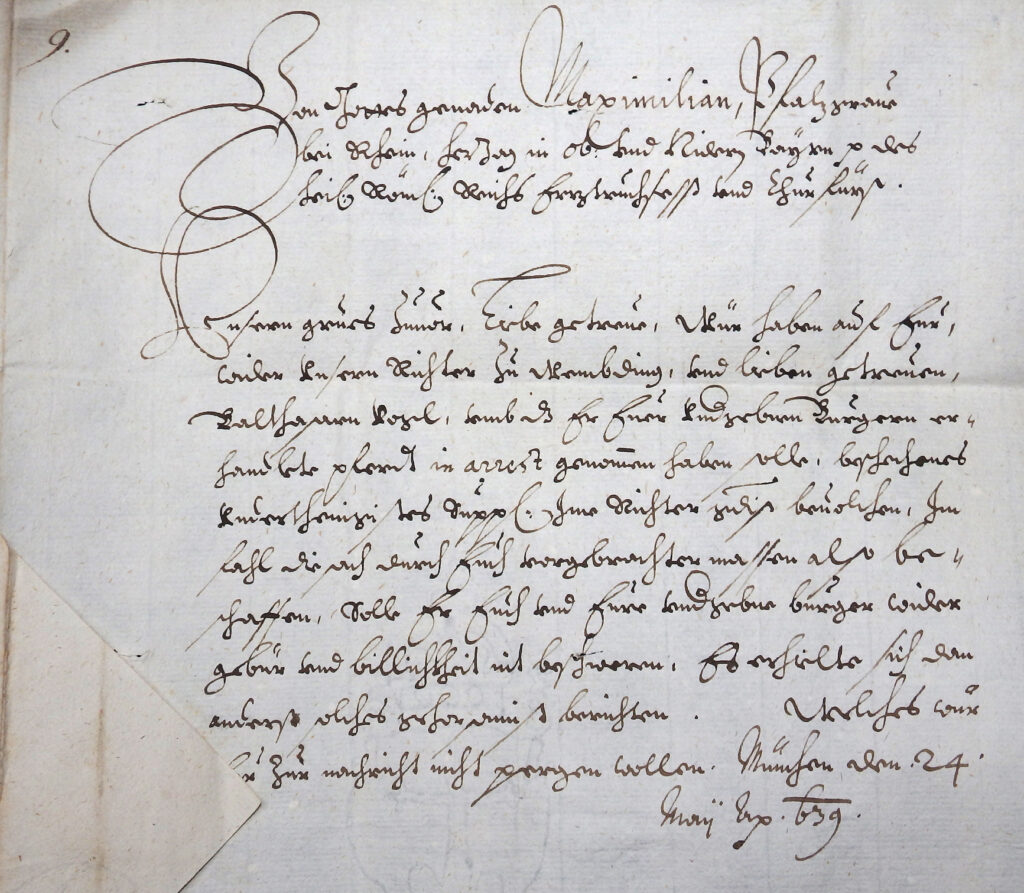 9.
Von Gottes genaden Maximilian, Pfalzgraue
bei Rhein, Herzog in Ob: vnd Nidern Bayrn p des
heil: Röm: Reichs Erztruchsess vnd Churfürst.
Vnsern grues zuuor, Liebe getreue, Wür haben auf Eur,
wider Vnsern Richter zu Wembding, vnd lieben getreuen,
Balthasarn Vogl, vmb dz Er Euer Vndgebnen Burgern er-
handlete pferdt in arrest genommen haben solle, beschehenes
Vnderthenigistes Suppl: Ime Richter gdist beuolchen, Im
fahl die sach durch Euch vorgebrachter massen also be-
schaffen, Solle Er Euch vnd Eure vndgebne burger wider
gebür vnd billichkheit nit beschweren, Es erhielte sich dan
anderst solches gehorsamist berichten. Welches wür
zur nachricht nicht pergen wollen. München den 24
May Ao. 639.